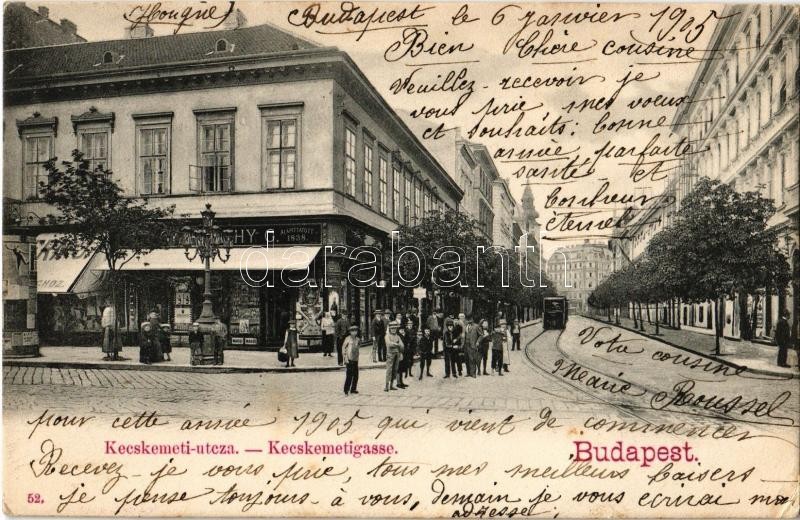 (Hongrie) Budapest le 6 janvier 1905
Bien Chère cousine
Veuillez-recevoir je
vous prie mes voeux
et souhaits: bonne
année parfaite
santé et
bonheur
éternel
HY E. ALAPITTATOTT
1838.
darabanth
Votre cousine
Marie Roussel
pour cette année 1905 qui vient de commencer
Kecskemeti-utcza. — Kecskemetigasse.
Budapest.
Recevez-je vous prie, tous mes meilleurs baisers
52.
je pense toujours à vous, demain je vous écrirai ma
adresse;